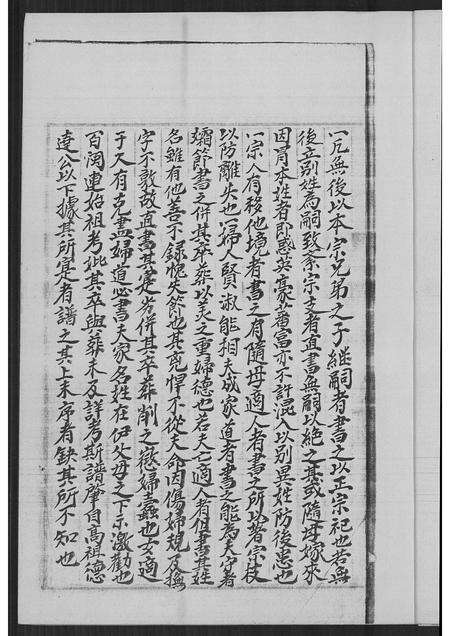 一凡無後以本宗兄弟之子継嗣者書之以正宗祀也若無
後立别姓為嗣致紊宗支者直書無嗣以絶之其或隨母嫁來
因冐本姓者即英豪蕃富亦不許混入以别異姓防後患也
一宗人有移他境者書之有隨母適人者書之所以嚴宗枝
以防離失也婦人賢淑能相夫成家道者書之能為夫守者
孀節書之併其卒葬以美之重婦德也若夫亡適人者但書其姓
名雖有他善不録愧失節也其兇悍不從夫命因傷婦規及撫
字不敦故直書其是劣併其卒葬削之懲婦蠹也女適
于人有克盡婦道必書夫家名姓在伊父母之下示激勸也
百閲連始祖考妣其卒與葬未及詳考斯譜肇自高祖德
達公以下據其所寔者譜之其上未序者缺其所不知也